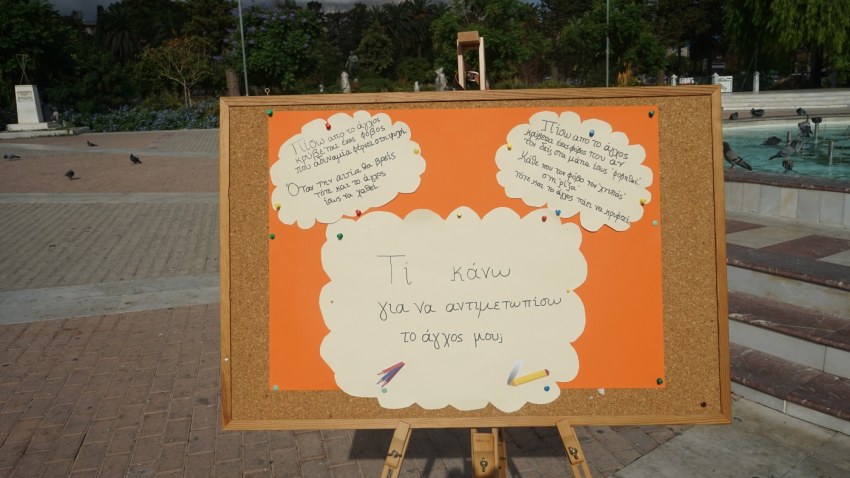 Πίσω από το άγχος
κρύβεται ένας φόβος
που αδυναμία φέρνει στη ψυχή
Όταν την αιτία θα βρεις
τότε και το άγχος
ίσως να χαθεί
Πίσω από το άγχος
κρύβεται ένας φόβος που αν
τον δεις στα μάτια ίσως "φοβηθεί"
Κάθε που τον φόβο τον χτυπάς
στη "ρίζα"
τότε και το άγχος πάει να κρυφτεί
Τί κάνω
για να αντιμετωπίσω
το άγχος μου;